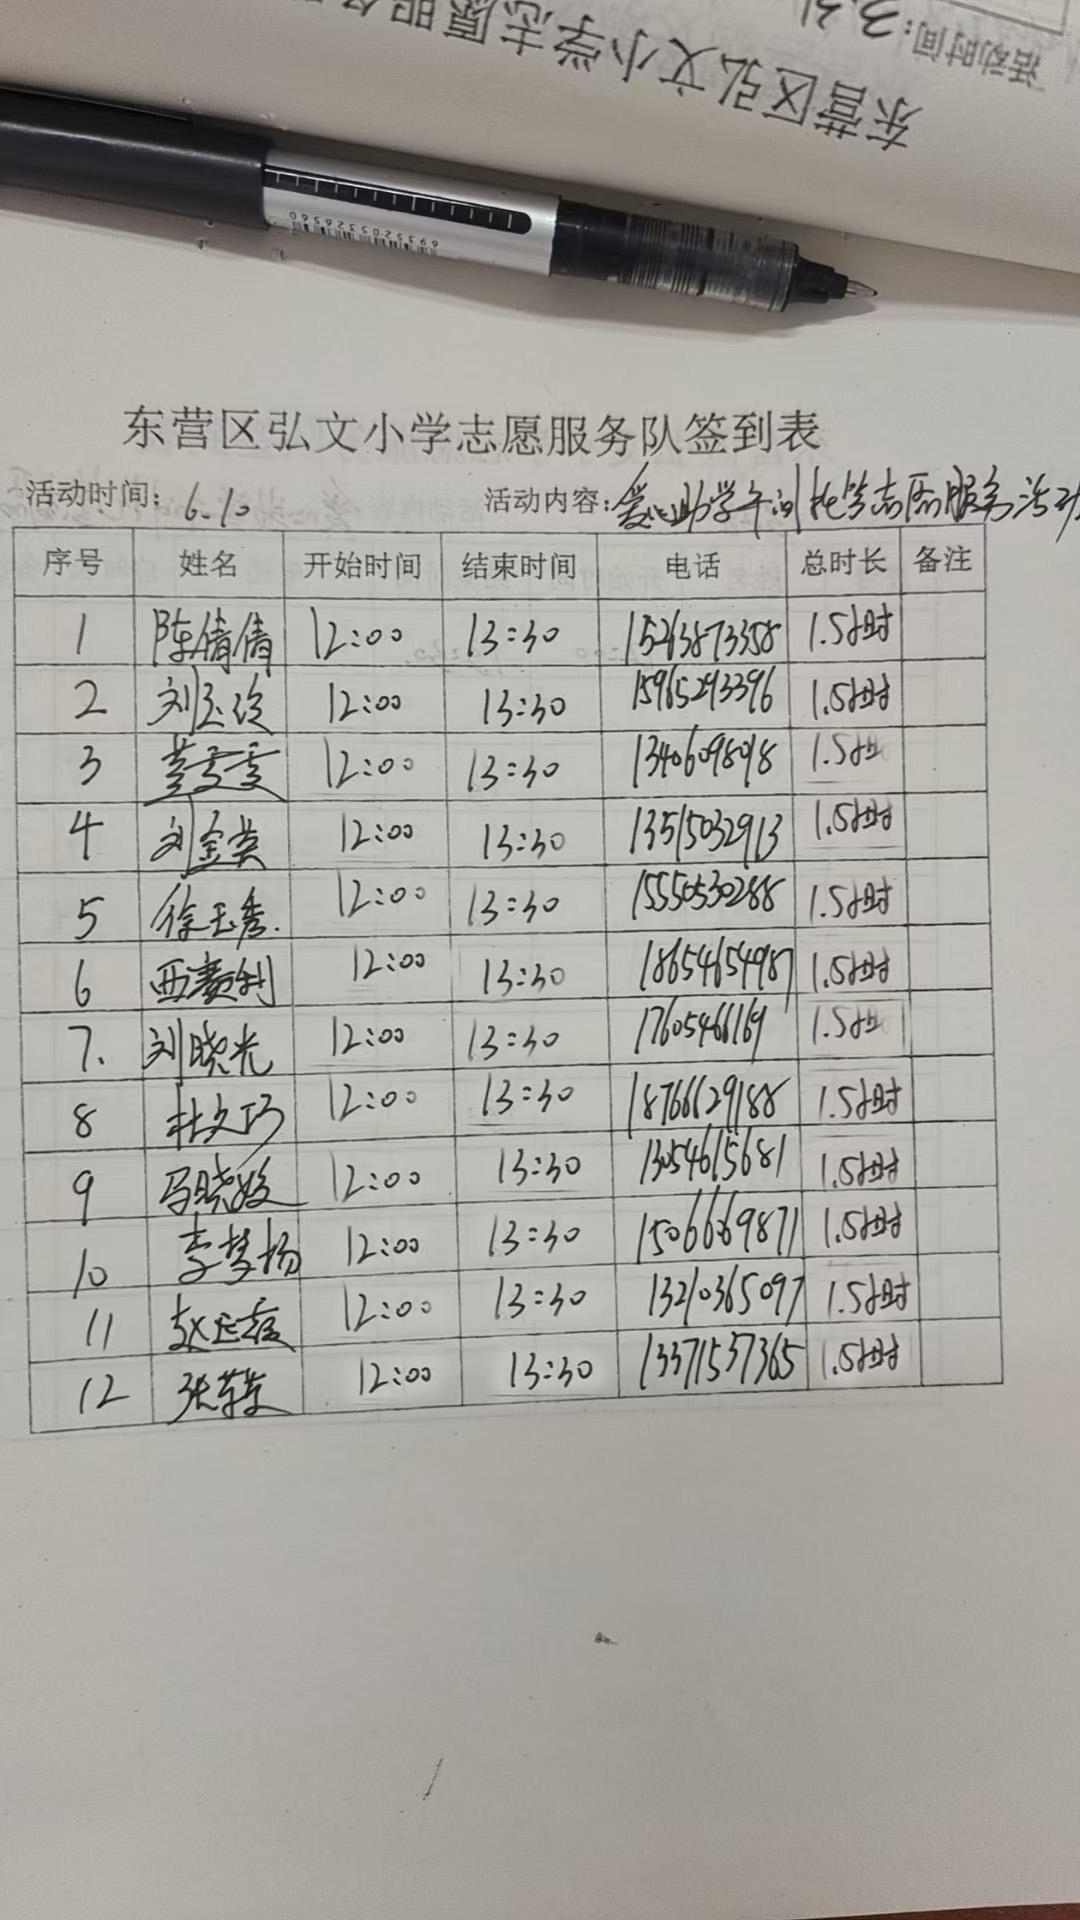 东营区弘文小学志愿服务
活动时间:3.31
6935205326560
东营区弘文小学志愿服务队签到表
活动时间: 6.10 活动内容: 爱心助学午间托管志愿服务活动
序号 姓名 开始时间 结束时间 电话 总时长 备注
1 陈倩倩 12:00 13:30 15263873358 1.5小时
2 刘玉玲 12:00 13:30 15965293396 1.5小时
3 12:00 13:30 13406098018 1.5小时
4 刘金英 12:00 13:30 13515032913 1.5小时
5 徐玉秀. 12:00 13:30 15550530288 1.5小时
6 西赛利 12:00 13:30 18654654987 1.5小时
7. 刘晓光 12:00 13:30 17605466169 1.5小时
8 杜文巧 12:00 13:30 18766629188 1.5小时
9 马晓姣 12:00 13:30 13054615681 1.5小时
10 李梦杨 12:00 13:30 15066669871 1.5小时
11 12:00 13:30 13210365097 1.5小时
12 12:00 13:30 13371537365 1.5小时